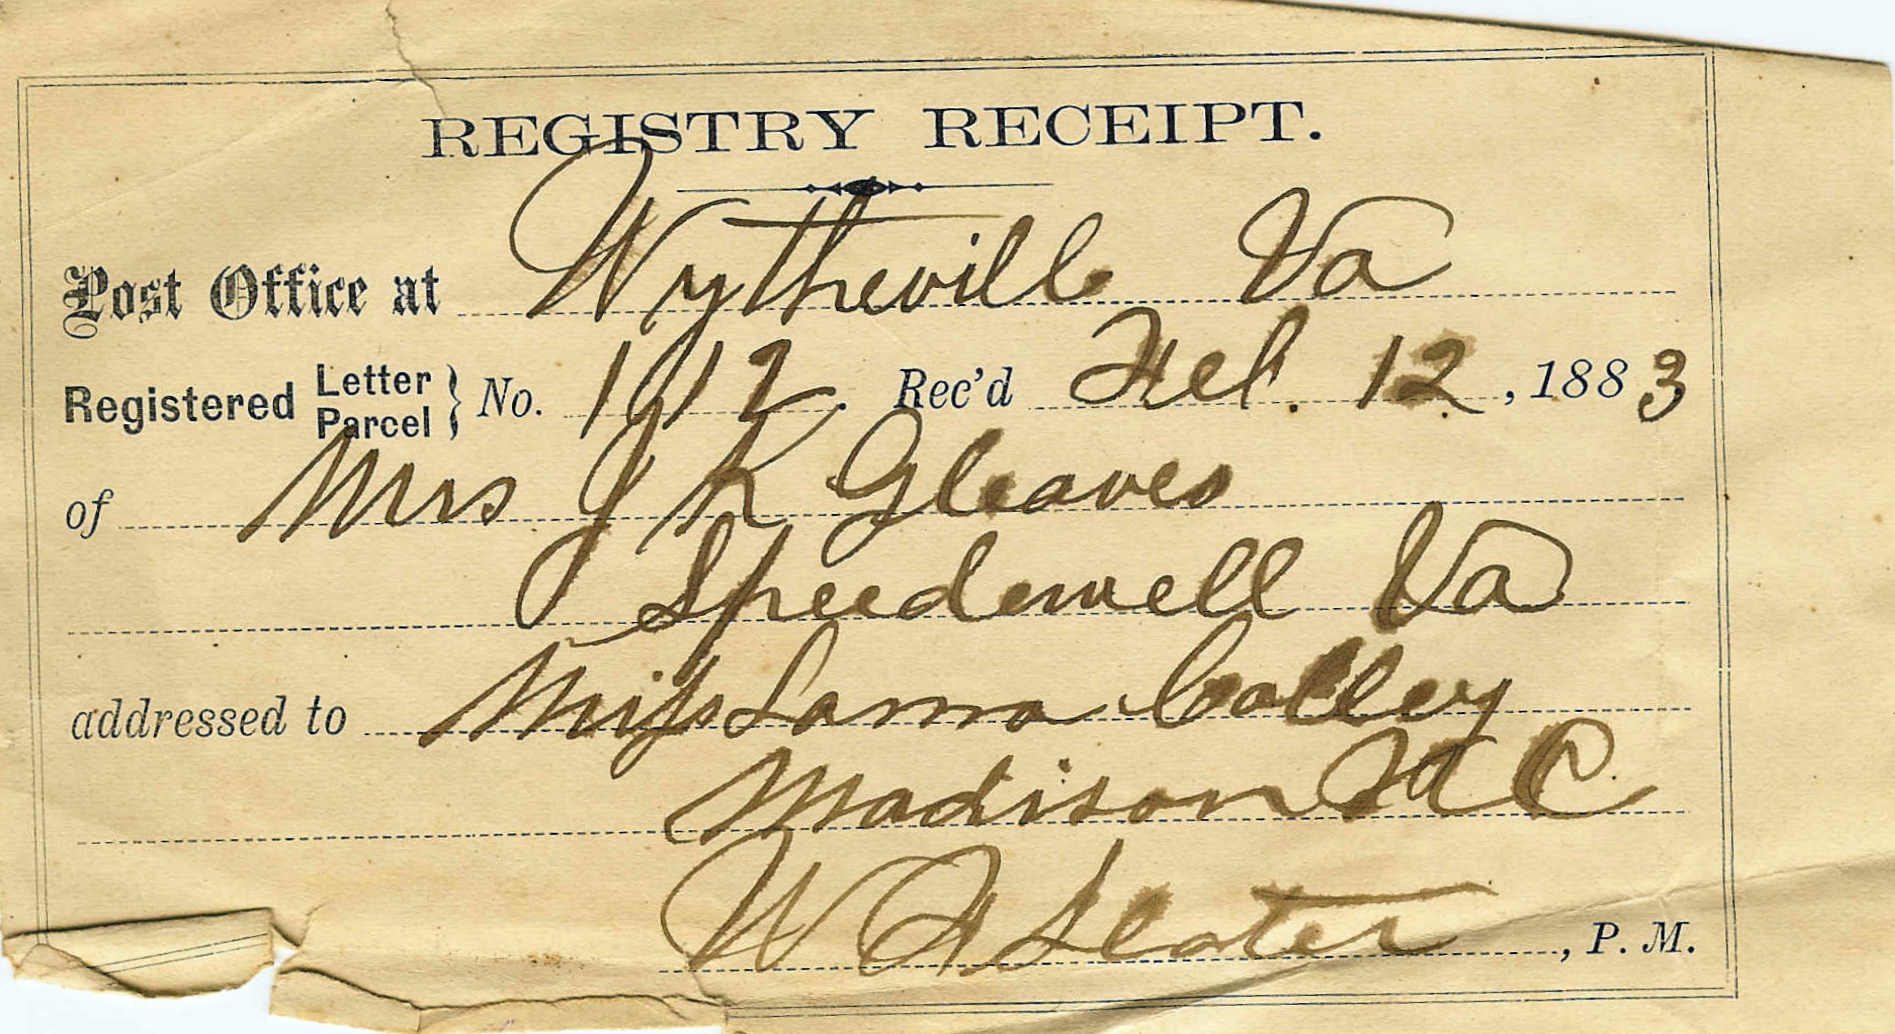 REGISTRY RECEIPT.
Post Office at Wytheville Va
Registered Letter Parcel } No. 1912. Rec'd Feb. 12, 1883
of Mrs J K Gleaves
Speedwell Va
addressed to Miss Colley
Madison N C
W Slater, P. M.